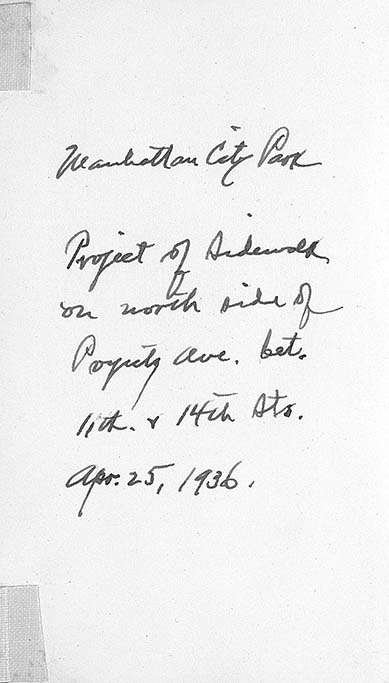 Manhattan City Park
Project of Sidewalk
on north side of
Poyntz Ave. bet.
11th. & 14th Sts.
Apr. 25, 1936.